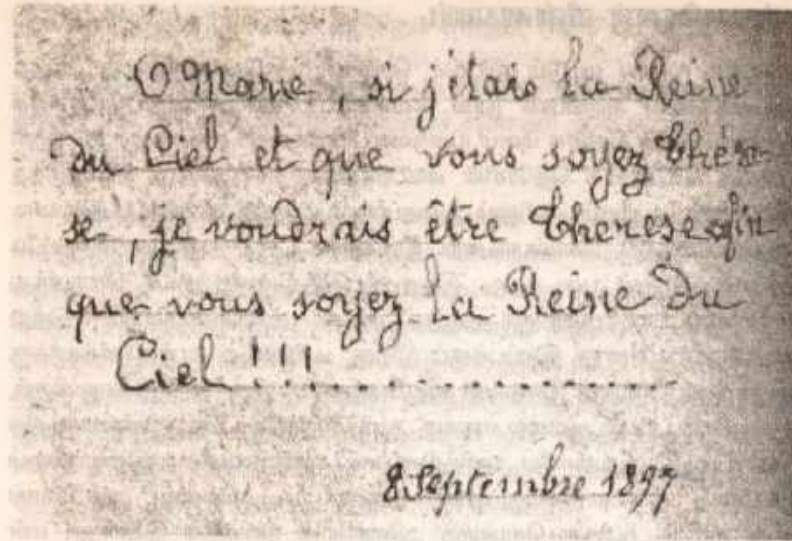 O Marie, si j'étais la Reine
du Ciel et que vous soyez Thérè-
se, je voudrais être Thérèse afin
que vous soyez la Reine du
Ciel !!!....................
8 Septembre 1897